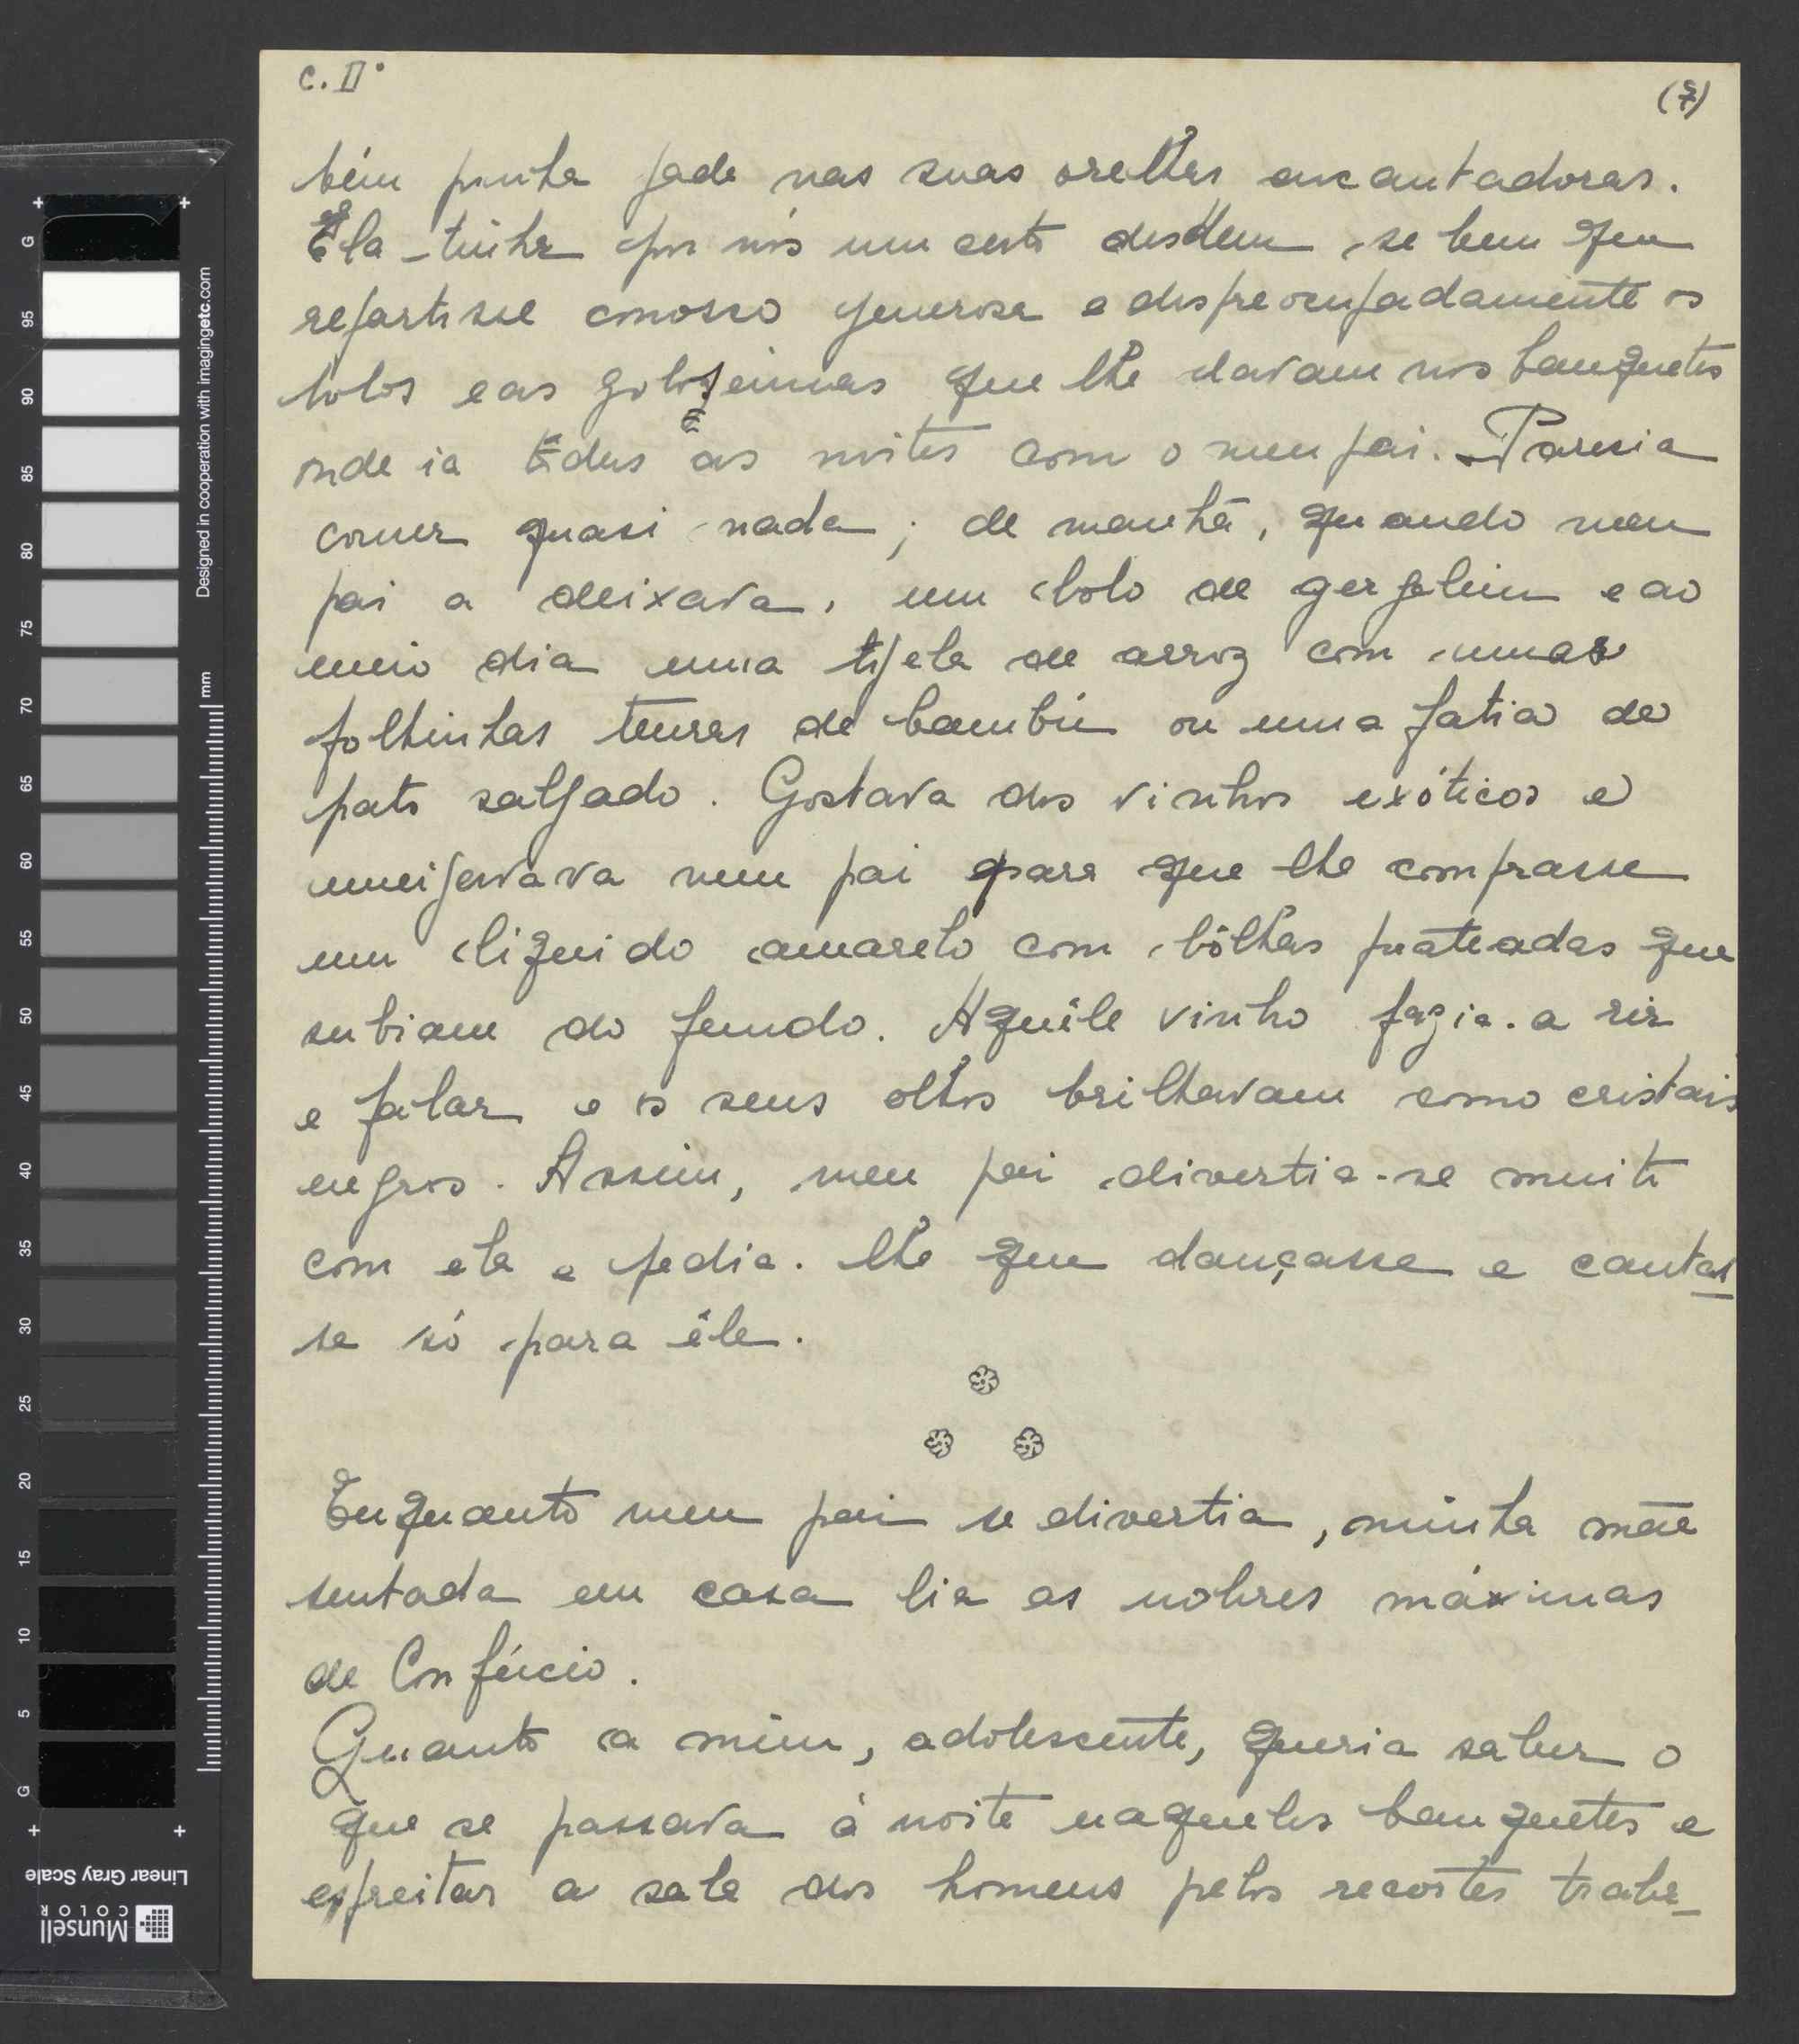 C. IIº
(7)
bém punha jade nas suas orelhas encantadoras.
Ela tinha por nós um certo desdem, se bem que
repartisse conosco generosa e despreocupadamente os
bolos e as goloseimas que lhe davam nos banquetes
onde ia todas as noites com o meu pai. Parecia
comer quasi nada; de manhã, quando meu
pai a deixava, um bolo de gergelim e ao
meio dia uma tijela de arroz com umas
folhinhas tenras de bambú ou uma fatia de
pato salgado. Gostava dos vinhos exóticos e
meigava meu pai para que lhe comprasse
um liquido amarelo com bôlhas prateadas que
subiam do fundo. Aquêle vinho fazia-a rir
e falar e os seus olhos brilhavam como cristais
negros. Assim, meu pai divertia-se muito
com ela e pedia-lhe que dançasse e cantas
se só para êle.
Enquanto meu pai se divertia, minha mãe
sentada em casa lia as nobres máximas
de Confúcio.
Quanto a mim, adolescente, queria saber o
que se passava à noite naqueles banquetes e
espreitar a sala dos homens pelos recortes traba-
Designed in cooperation with imagingetc.com
mm
G
95
90
85
80
75
70
65
60
55
50
45
40
35
30
25
20
15
10
5
G
Linear Gray Scale
Munsell
COLOR